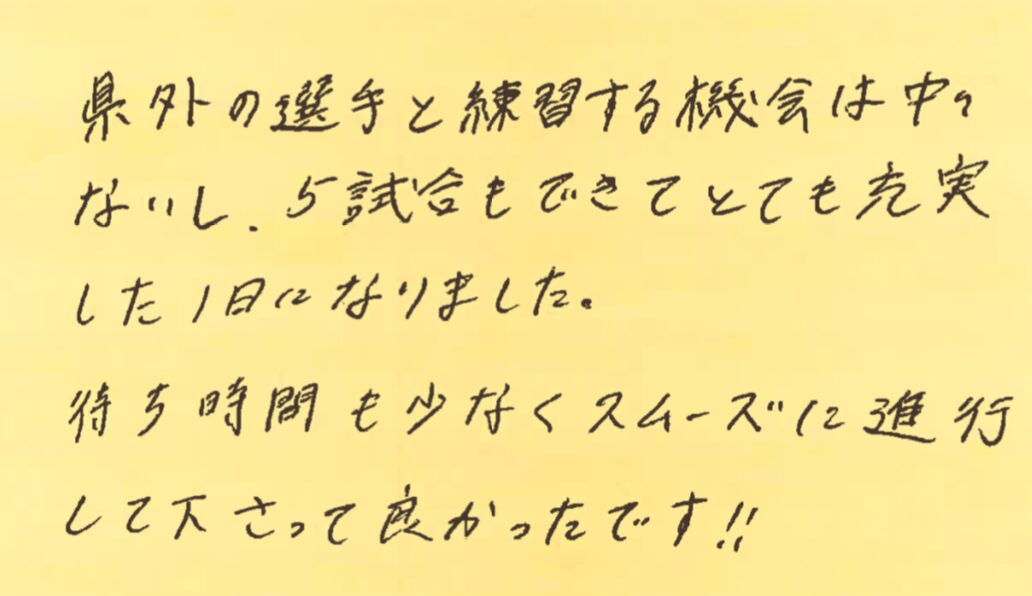 県外の選手と練習する機会は中々
ないし、5試合もできてとても充実
した1日になりました。
待ち時間も少なくスムーズに進行
して下さって良かったです!!